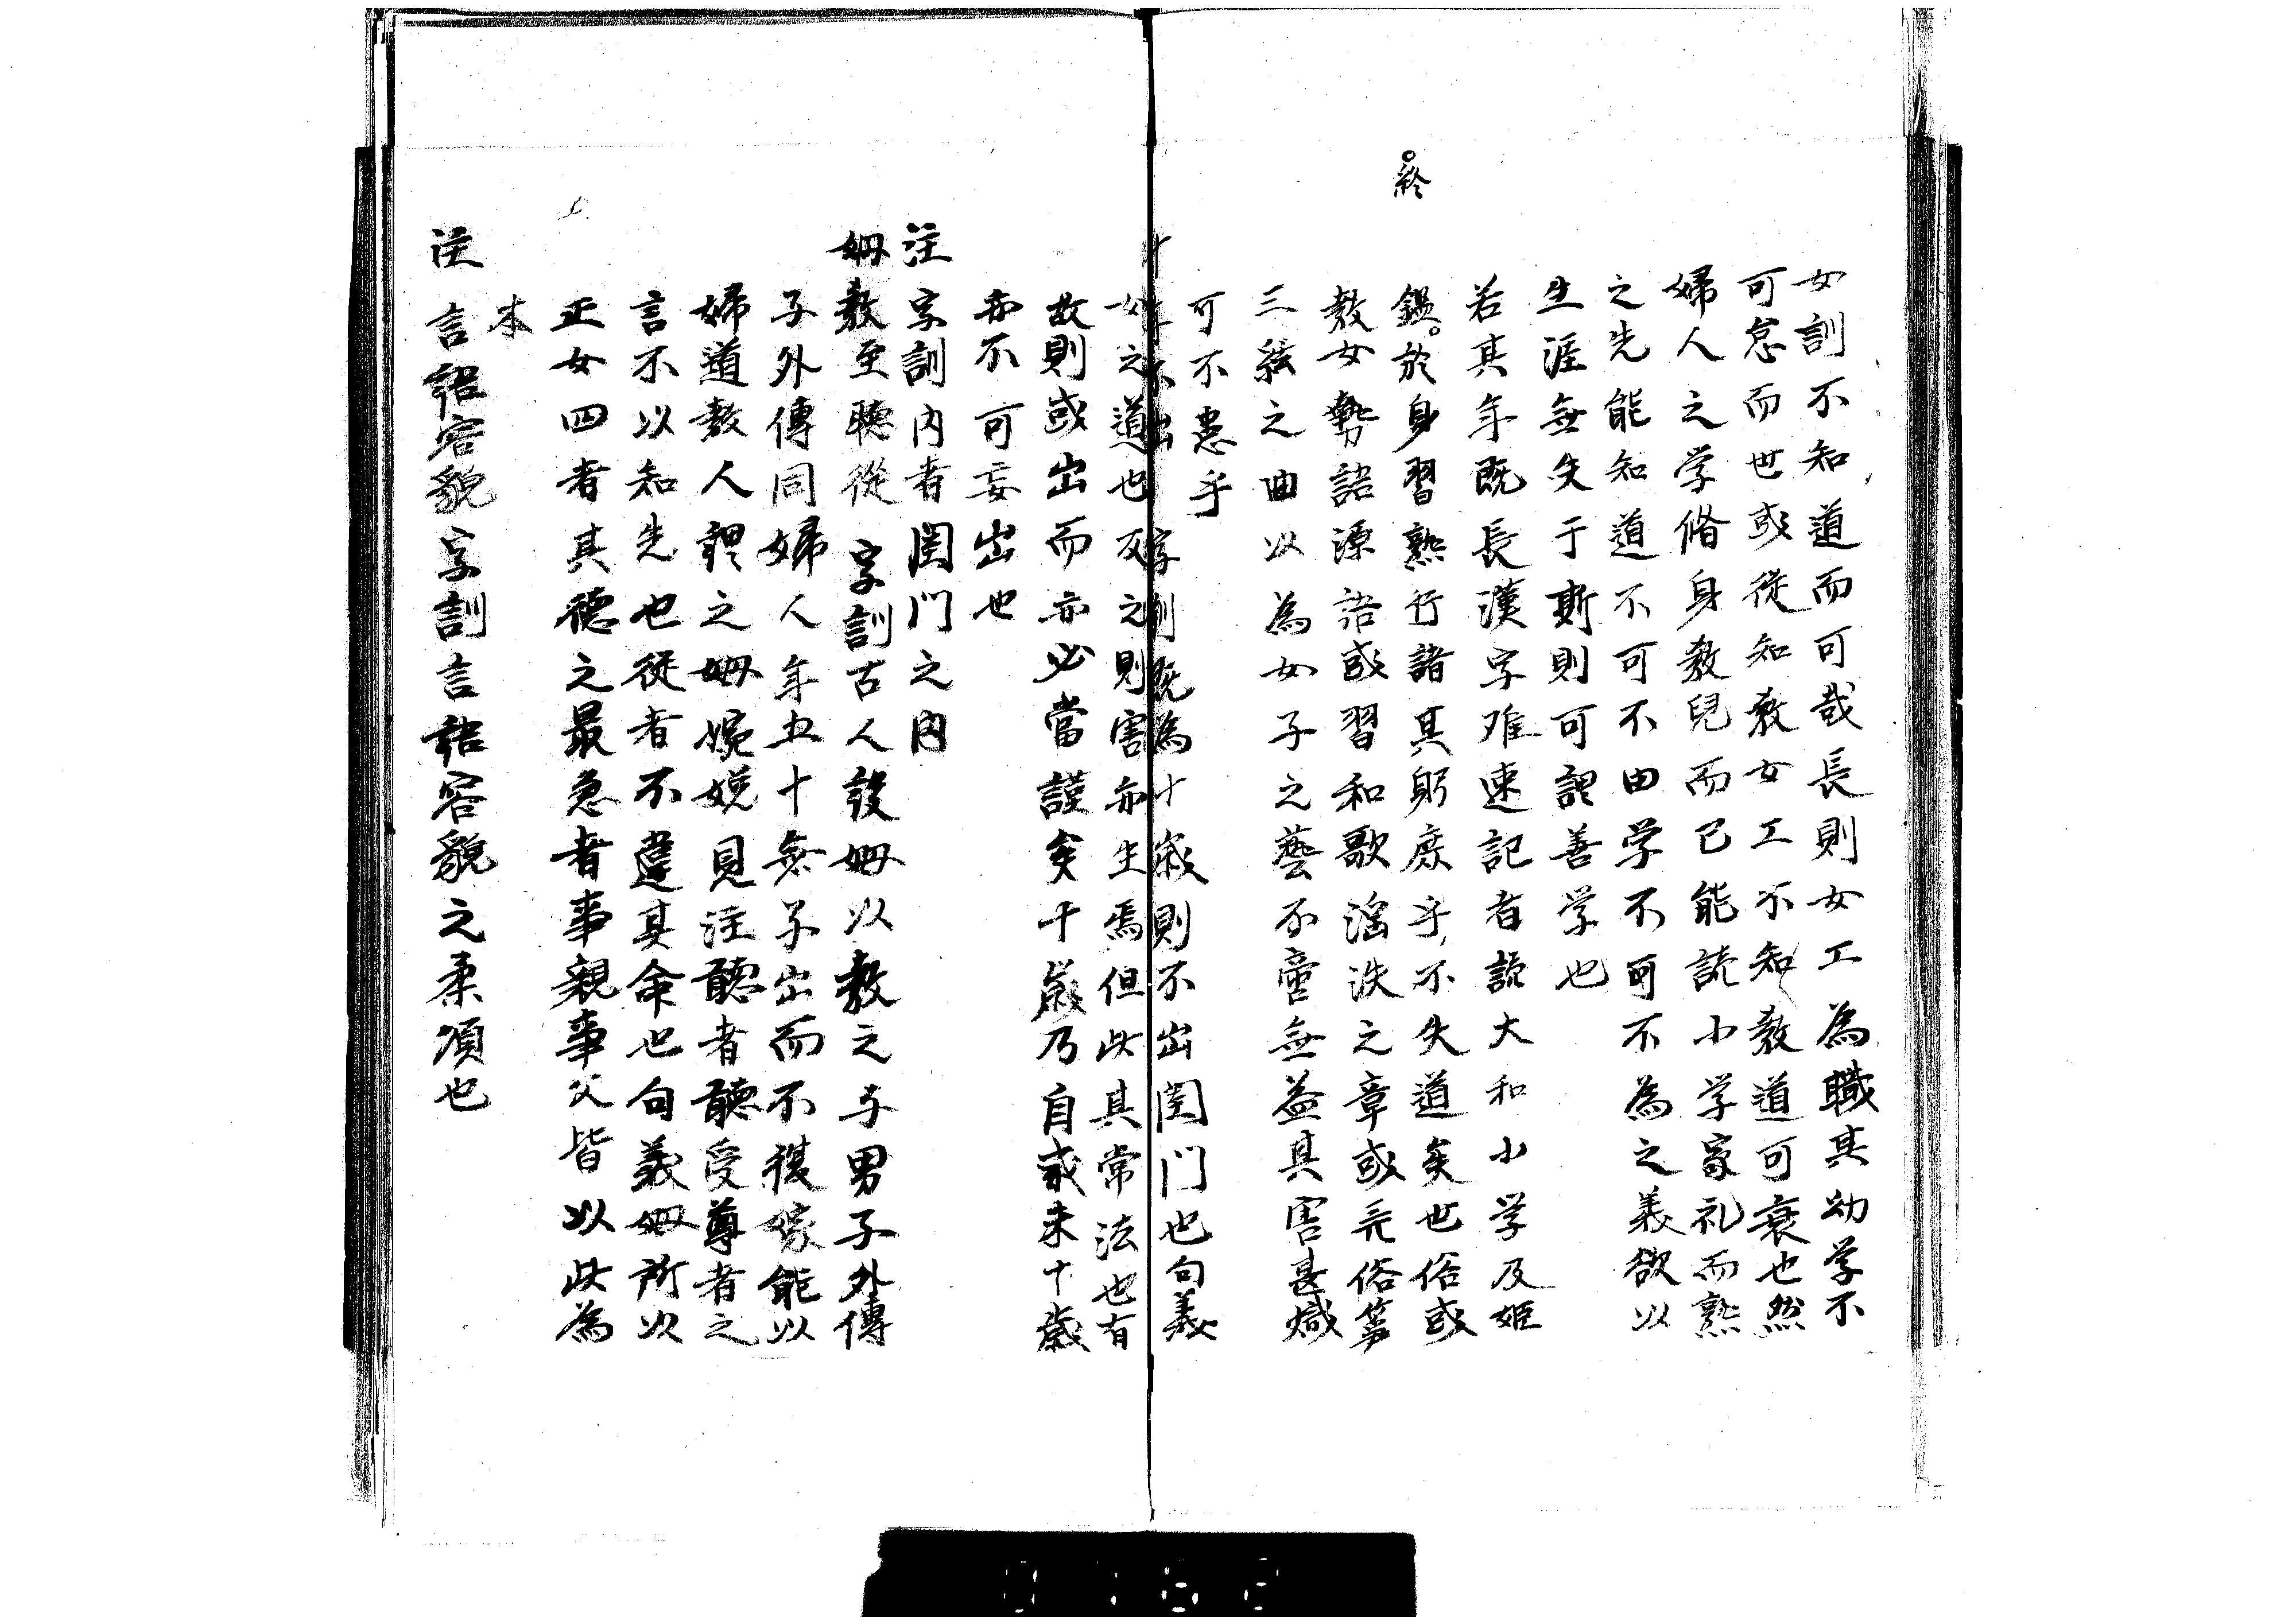 女訓不知道而可哉長則女工為職其幼学不
可怠而世或從知教女工不知教道可衰也然
婦人之学脩身教兒而已能読小学家礼而熟
之先能知道不可不由学不可不為之義欲以
生涯無失于斯則可謂善学也
若其年既長漢字难速記者読大和小学及姫
鑑於身習熟行諸其躬庶乎不失道矣世俗或
終
教女勢語源語或習和歌滛泆之章或玩俗箏
三絃之曲以為女子之藝不啻無益其害甚熾
可不患乎
十年不出 字訓既為十歳則不出閨门也句義
女之道也反之則害亦生焉但此其常法也有
故則或出而亦必當謹矣十歳乃自或未十歳
亦不可妄出也
注 字訓内者閨门之内
姆教至聴從 字訓古人設姆以教之与男子外傳
子外傳同婦人年五十無子出而不復嫁能以
婦道教人謂之姆婉娩見注聽者聽受尊者之
言不以知先也從者不違其命也句義姆所以
正女四者其德之最急者事親事父皆以此為
本
注 言語容貌字訓言語容貌之柔順也